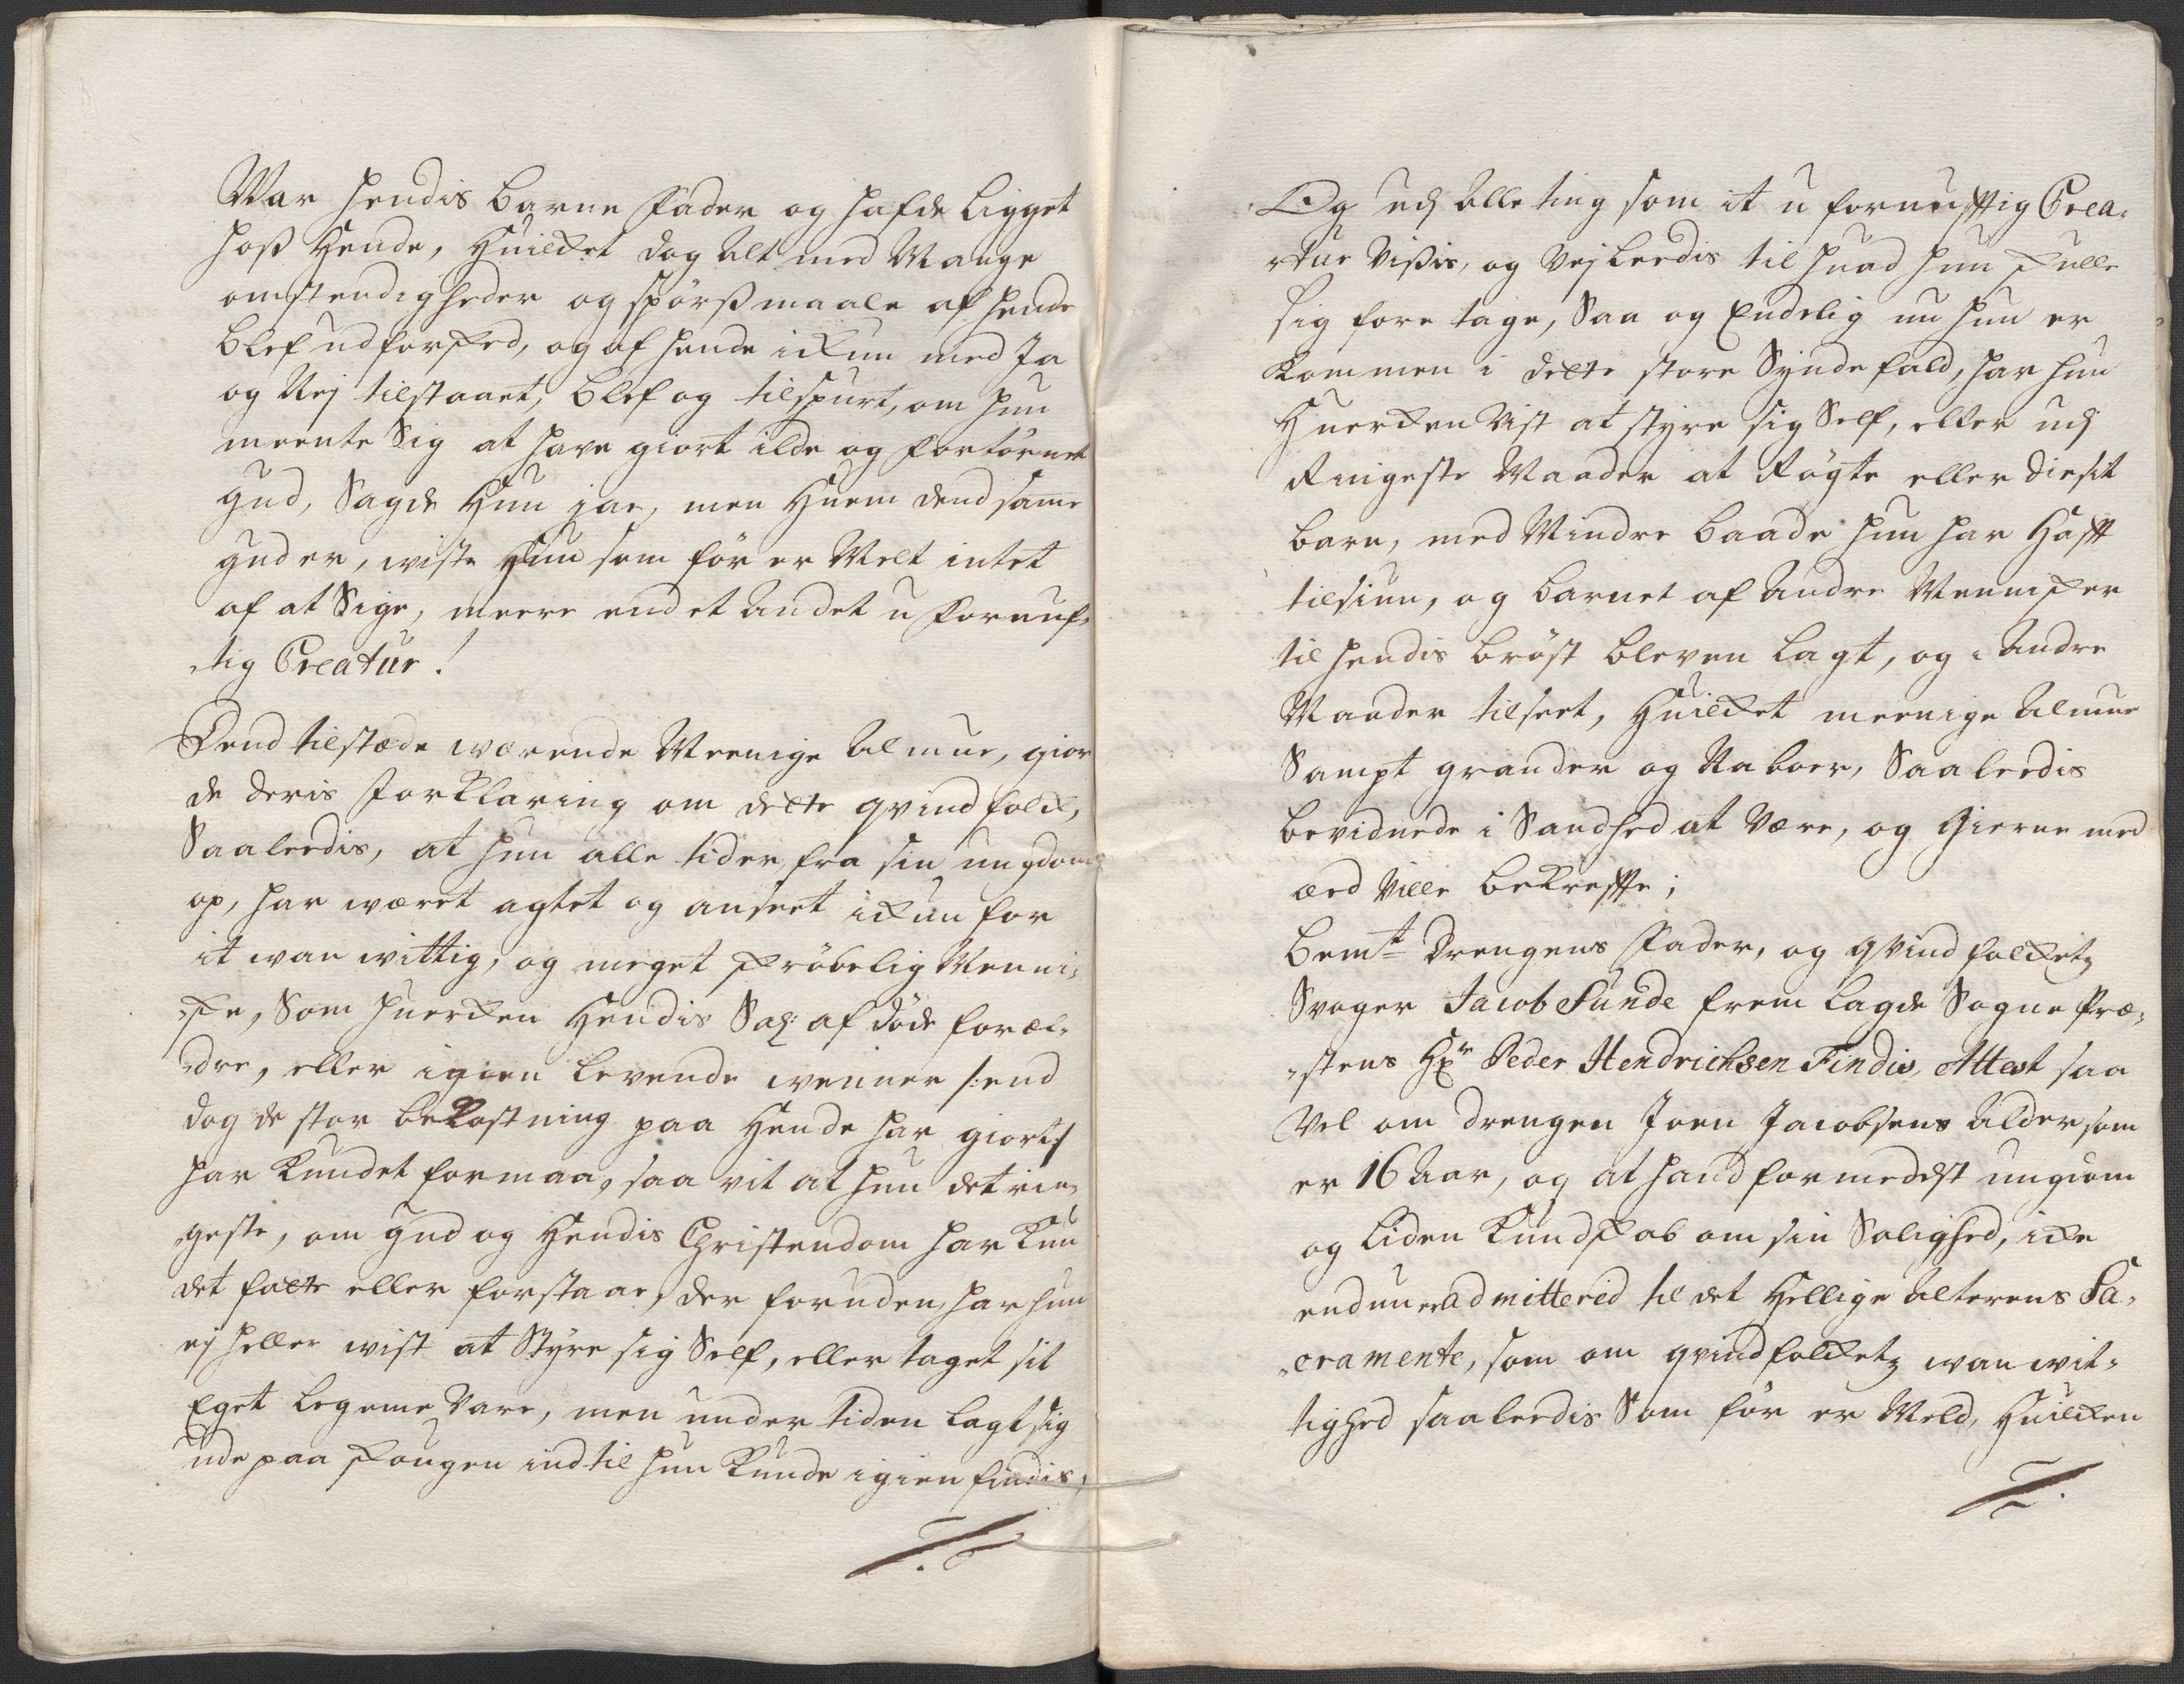 War hendis barne Fader og hafde ligget
hoß hende, Huilket dog alt med Mange
omstendigheder og spörßmaale af hende
blef udforsked, og af hende ickun med Ja
og Nej tilstaaet, blef og tilspurt, om hun
meente Sig at have giort ilde og fortörnet
Gud, Sagde Hun jae, men Huem dend samme
gud er, wiste Hun som för er Melt intet
af at Sige, meere end et andet u fornuf-
tig Creatur!
Dend tilstæde wærende Meenige Almue, gior
de deris Forklaring om dette qvindfolk,
Saaleedis, at hun alle tider fra sin ungdom
op, har wæret agtet og anseet ickun for
it wanwittig, og meget skröbelig Menni-
ske, Som huercken Hendis Sal: afdöde foræl-
dre, eller igien levende wenner /: end
dog de stor bekostning paa Hende har giort :/
har kundet formaa, saa vit at hun det rin-
geste, om Gud og Hendis Christendom har kun
det fatte eller forstaae, der foruden, har hun
ej heller wist at Styre sig Self, eller taget sit
Eget legeme vare, men under tiden lagt sig
ude paa skougen indtil hun kunde igien findis,
Og udj alle ting som it u fornufftig Crea-
tur Vißis, og Vejleedis til huad hun skulle
sig fore tage, Saa og Endelig nu hun er
kommen i dette store Syndefald, har hun
Huercken Vist at styre sig Self, eller udj
Ringeste Maader at Rögte eller die sit
barn, med Mindre baade hun har Hafft
tilsiun, og barnet af andre Mennisker
til hendis bröst bleven lagt, og i andre
Maader tilseet, Huilket meenige Almue
Sampt grander og Naboer, Saaleedis
bevidnede i Sandhed at Være, og Gierne med
æed Ville bekreffte;
bemte Drengens Fader, og qvindfolkets
Svoger Jacob Sunde frem lagde Sogne Præ-
stens Hr Peder Hendrichsen Findis, Attest saa
Vel om drengen Joen Jacobsens alder som
er 16 aar, og at hand formedelst ungdom
og liden kundskab om sin Salighed, icke
endnu er admittered til det Hellige Alterens Sa-
cramente, som om qvindfolkets wanwit-
tighed saaleedis Som för er Meld, Huilcken